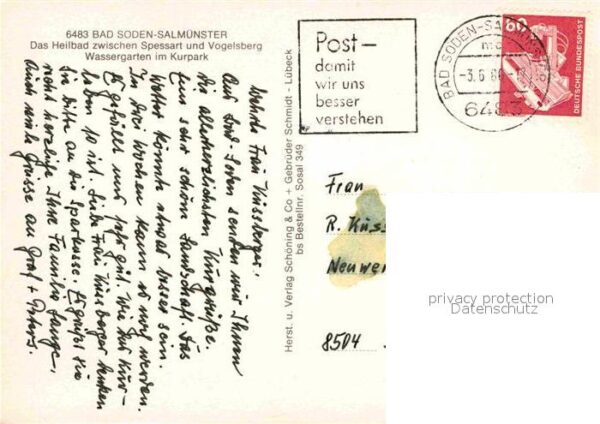 6483 BAD SODEN-SALMÜNSTER
Das Heilbad zwischen Spessart und Vogelsberg
Wassergarten im Kurpark
Werte Frau Küssberger.
Aus Bad-Soden senden wir Ihnen
die allerherzlichsten Kurgrüße.
Ein sehr schöne Landschaft. Das
Wetter konnte etwas besser sein.
In drei Wochen kann es noch werden.
Es gefällt uns sehr gut. Die Kur-
ist. Liebe Frau Küssberger
Sie bitte an die Sparkasse. Es grüßt Sie
recht herzlich Ihre Familie Lange,
auch viele Grüsse an Graf +
Herst. u. Verlag Schöning & Co + Gebrüder Schmidt - Lübeck
bs Bestellnr. Sosal 349
Post –
damit
wir uns
besser
verstehen
BAD SODEN-SALMÜNSTER
6483
60
DEUTSCHE BUNDESPOST
Frau
R. Küss
Neuwe
8504
privacy protection
Datenschutz